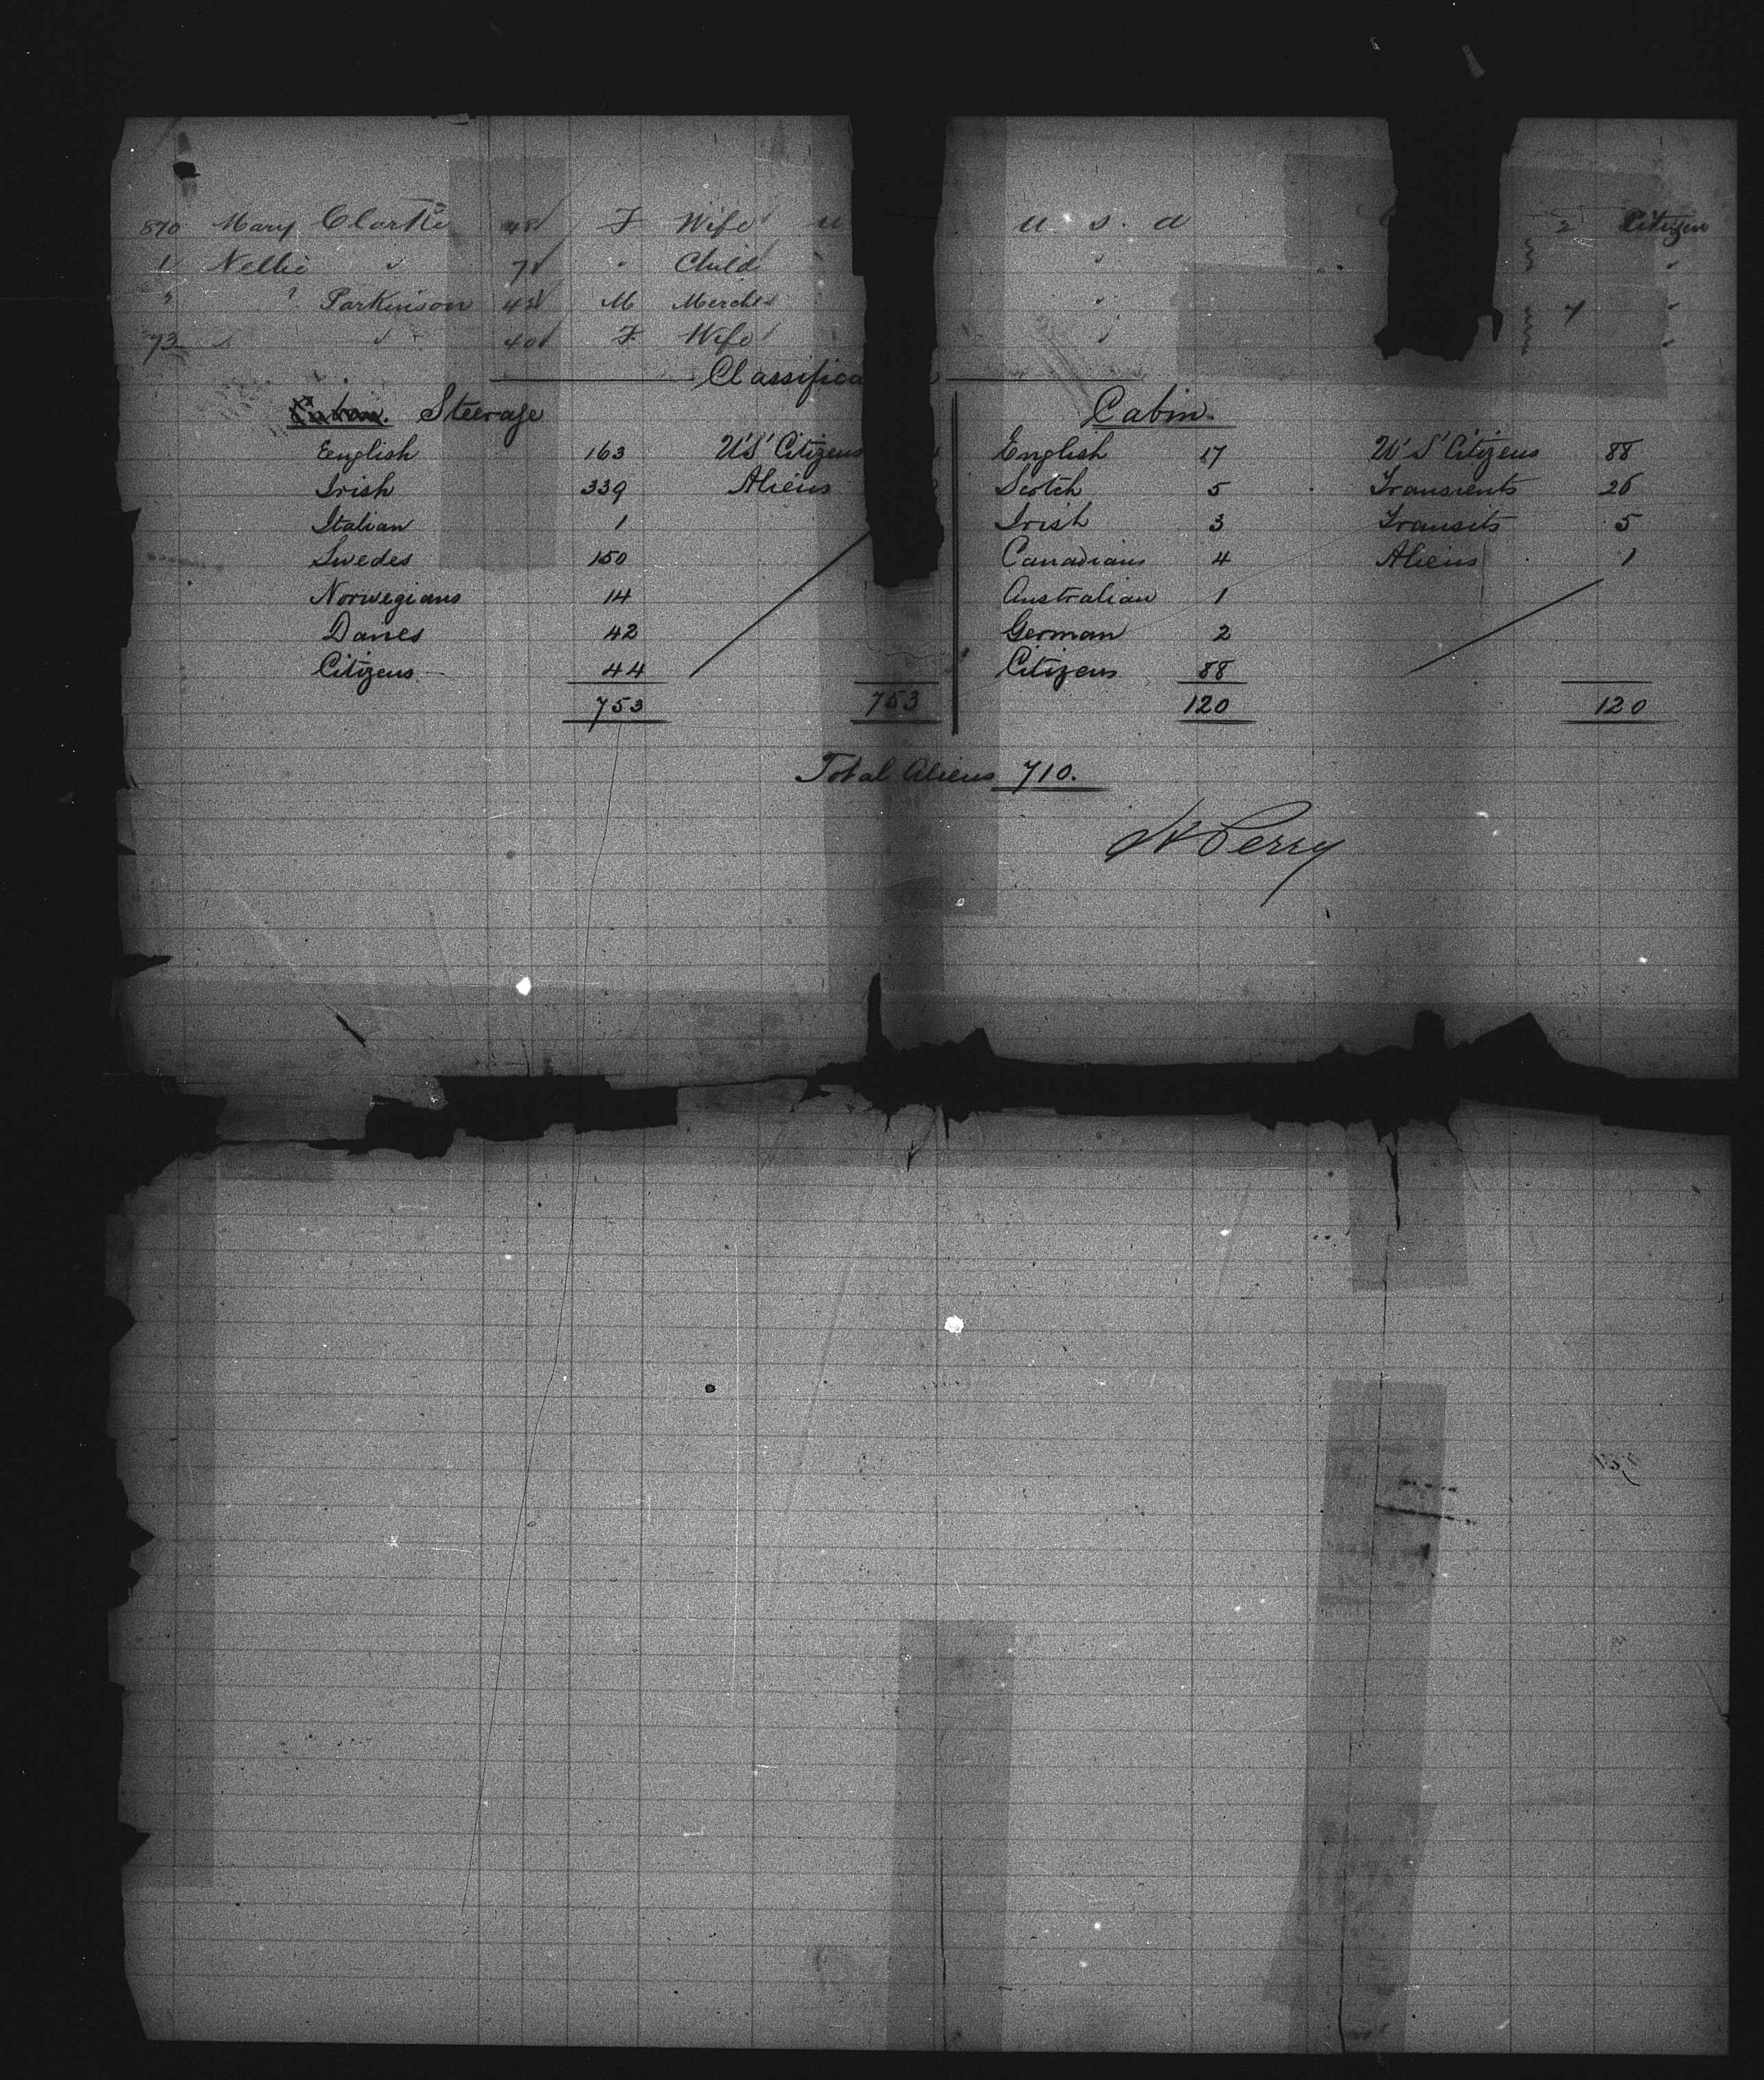 870 Mary Clarke 48 F Wife U U S A 2 Citizen
1 Nellie " 7 " Child " "
" " Parkinson 42 M Mercht " 4 "
73 " " 40 F Wife " "
Classifica
Steerage
Eenglish 163 U'S' Citizens
Irish 339 Aliens
Italian 1
Swedes 150
Norwegians 14
Danes 42
Citizens 44
753 753
Cabin.
English 17 U'S' Citizens 88
Scotch 5 Transients 26
Irish 3 Transits 5
Canadians 4 Aliens 1
Australian 1
German 2
Citizens 88
120 120
Total Aliens 710.
Perry